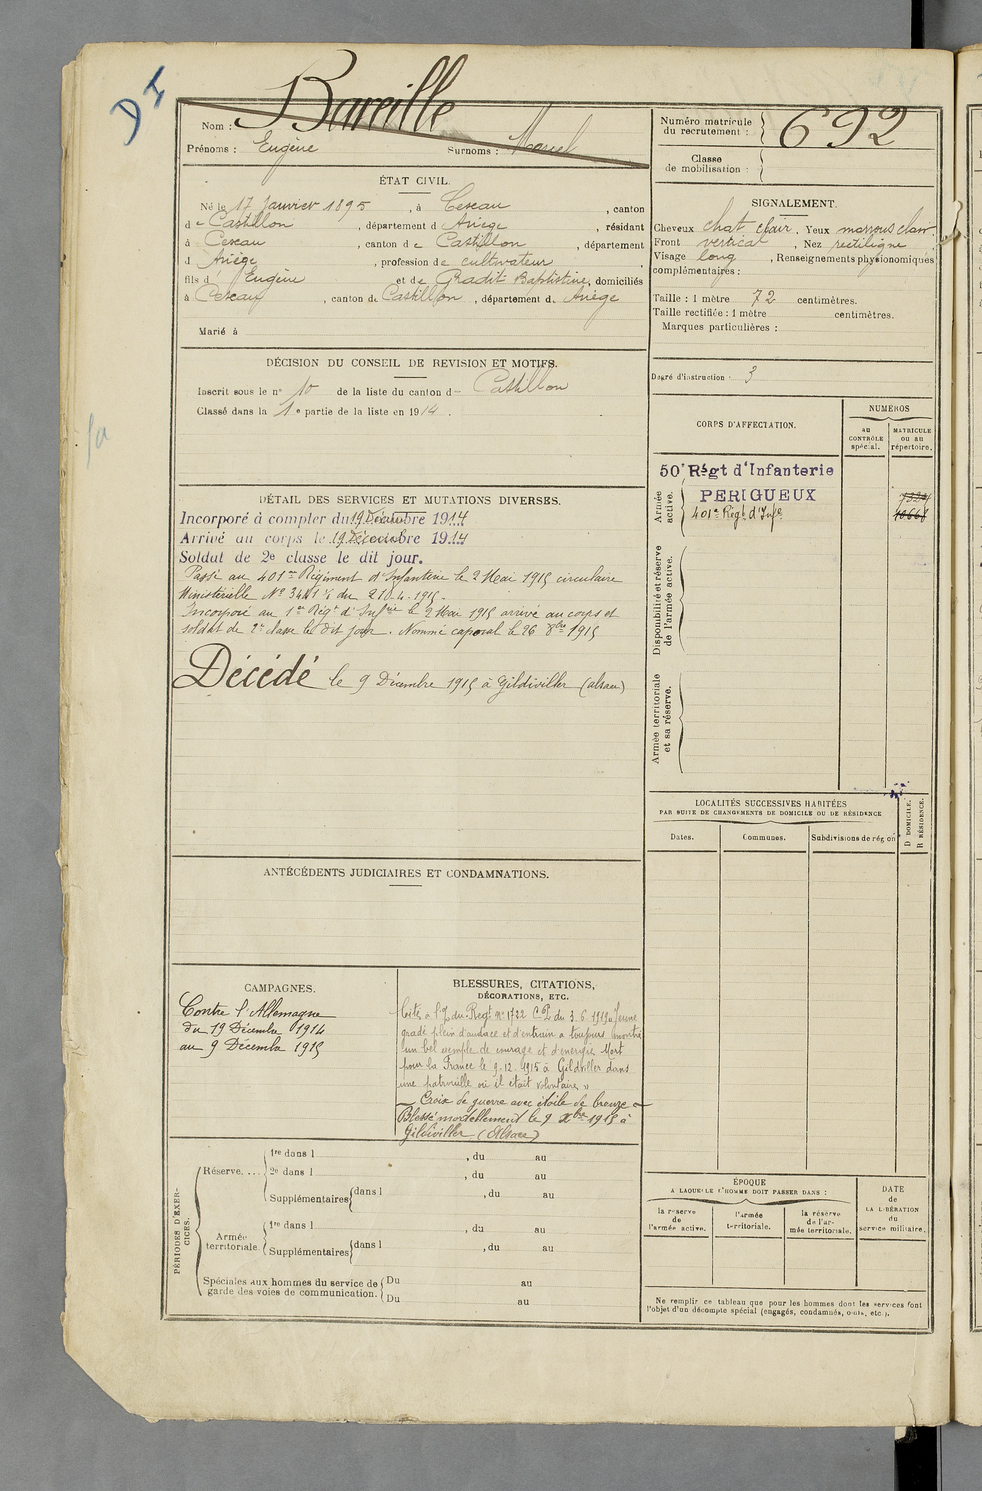 DI
Nom : Bareille
Prénoms : Eugène Surnoms : Marcel
Numéro matricule du recrutement : 692
Classe de mobilisation :
ÉTAT CIVIL.
Né le 17 Janvier 1895, à Cescau, canton
de Castillon, département d Ariège, résidant
à Cescau, canton de Castillon, département
d Ariège, profession de cultivateur
fils d' Eugène et de Gradit Baptistine, domiciliés
à Cescau, canton de Castillon, département d. Ariège
Marié à
SIGNALEMENT.
Cheveux chat clair. Yeux marrons clair
Front vertical, Nez rectiligne
Visage long, Renseignements physionomiques
complémentaires :
Taille : 1 mètre 72 centimètres.
Taille rectifiée : 1 mètre centimètres.
Marques particulières :
Degré d'instruction : 3
DÉCISION DU CONSEIL DE REVISION ET MOTIFS.
Inscrit sous le n° 10 de la liste du canton d- Castillon
Classé dans la 1e partie de la liste en 1914.
DÉTAIL DES SERVICES ET MUTATIONS DIVERSES.
Incorporé à compter du 19 Décembre 1914
Arrivé au corps le 19 Décembre 1914
Soldat de 2e classe le dit jour.
Passé au 401me Régiment d'Infanterie le 2 Mai 1915 circulaire
Ministérielle N°
Incorporé au 1er Régt d'Infrie le 2 Mai 1915 arrivé au corps et
soldat de 2e classe le dit jour. Nommé caporal le 26 8bre 1915
Décédé le 9 Décembre 1915 à Gildiviller (alsace)
CORPS D'AFFECTATION.
NUMÉROS
AU CONTRÔLE spécial.
MATRICULE ou au répertoire.
Armée active.
50e Régt d'Infanterie
PERIGUEUX
401e Régt d'Infie
Disponibilité et réserve de l'armée active.
Armée territoriale et sa réserve.
LOCALITÉS SUCCESSIVES HABITÉES
PAR SUITE DE CHANGEMENTS DE DOMICILE OU DE RÉSIDENCE
Dates. Communes. Subdivisions de région
D DOMICILE.
R RÉSIDENCE.
ANTÉCÉDENTS JUDICIAIRES ET CONDAMNATIONS.
CAMPAGNES.
Contre l'Allemagne
du 19 Décembre 1914
au 9 Décembre 1915
BLESSURES, CITATIONS,
DÉCORATIONS, ETC.
Cité à l'O. du Regt N° 1722 du 3.6.1919 « Jeune
gradé plein d'audace et d'entrain a toujours montré
un bel exemple de courage et d'energie. Mort
pour la France le 9.12.1915 à Gildviller dans
une patrouille où il était volontaire »
– Croix de guerre avec étoile de bronze –
Blessé mortellement le 9 Xbre 1915 à
Gildiviller (Alsace)
PÉRIODES D'EXERCICES.
Réserve.... 1re dans l , du au
2e dans l , du au
Supplémentaires dans l , du au
Armée territoriale. 1re dans l , du au
Supplémentaires dans l , du au
Spéciales aux hommes du service de garde des voies de communication. Du au
Du au
ÉPOQUE
A LAQUELLE L'HOMME DOIT PASSER DANS :
la réserve de l'armée active.
l'armée territoriale.
la réserve de l'armée territoriale.
DATE de LA LIBÉRATION du service militaire.
Ne remplir ce tableau que pour les hommes dont les services font
l'objet d'un décompte spécial (engagés, condamnés, omis, etc.).